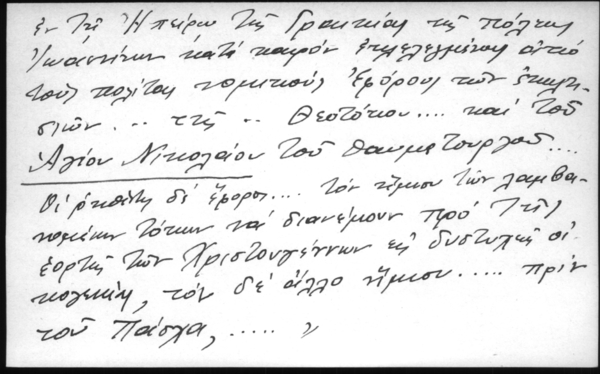 ἐν τῇ Ἠπείρῳ τῆς Γραικίας τῆς πόλεως
Ἰωαννίνων κατὰ καιρόν ἐκλελεγμένους ἀπό
τούς πολίτας νομικούς Ἐφόρους τῶν ἐκκλη-
σιῶν ... τῆς .. Θεοτόκου .... καί τοῦ
Ἁγίου Νικολάου τοῦ Θαυματουργοῦ ....
Οἱ ῥηθέντες δέ ἔφοροι .... τόν ἥμισυ τῶν λαμβα-
νομένων τόκων νά διανέμουν πρό τῆς
ἑορτῆς τῶν Χριστουγέννων εἰς δυστυχεῖς οἰ-
κογενείας, τόν δέ ἄλλο ἥμισυ ..... πρίν
τοῦ Πάσχα, ..... »